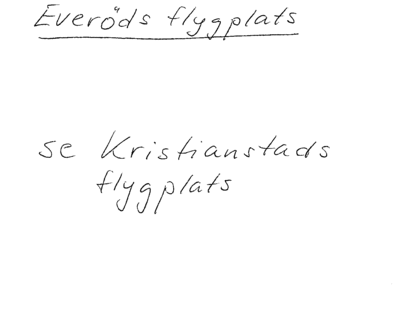 Everöds flygplats
se Kristianstads
flygplats